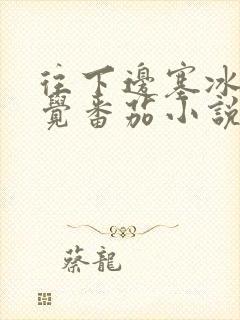 往下邊塞冰
覺番茄小說
蔡龍